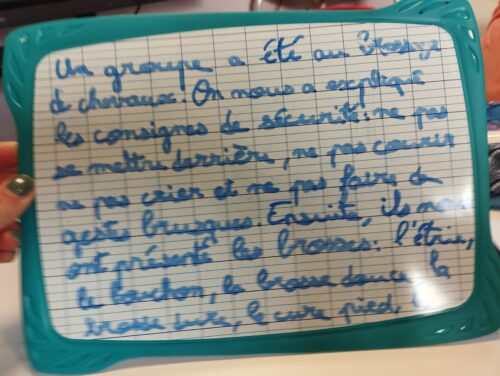 Un groupe a été au brossage
de chevaux. On nous a expliqué
les consignes de sécurité: ne pas
se mettre derrière, ne pas courir
ne pas crier et ne pas faire de
gestes brusques. Ensuite, ils nous
ont présenté les brosses: l'étrie,
le bouchon, la brosse douce, la
brosse dure, le cure pied,